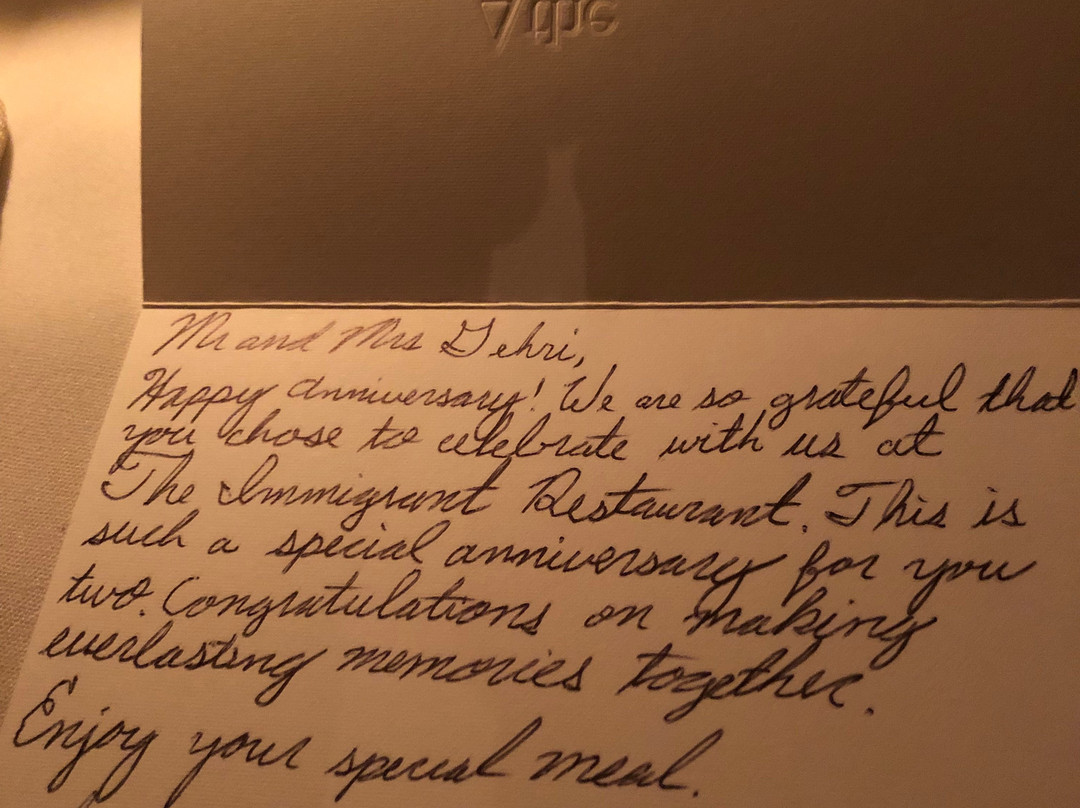 the
Mr and Mrs Gehri,
Happy anniversary! We are so grateful that
you chose to celebrate with us at
The Immigrant Restaurant. This is
such a special anniversary for you
two. Congratulations on making
everlasting memories together.
Enjoy your special meal.